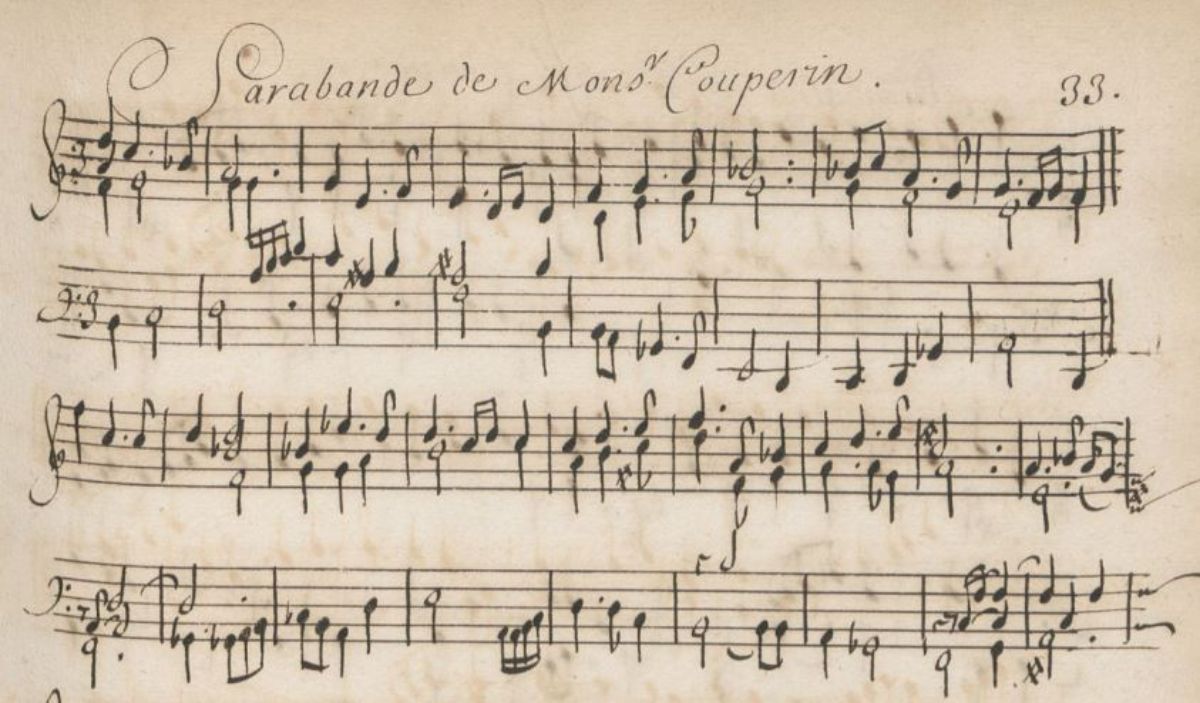 Sarabande de Monsr Couperin. 33.